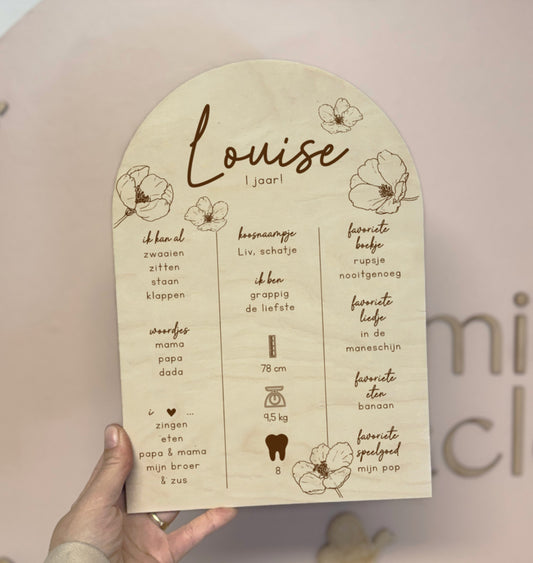 Louise
1 jaar!
ik kan al
zwaaien
zitten
staan
klappen
woordjes
mama
papa
dada
i ♥ ...
zingen
eten
papa & mama
mijn broer
& zus
koosnaampje
Liv, schatje
ik ben
grappig
de liefste
78 cm
9,5 kg
8
favoriete
boekje
rupsje
nooitgenoeg
favoriete
liedje
in de
maneschijn
favoriete
eten
banaan
favoriete
speelgoed
mijn pop
mi
acl